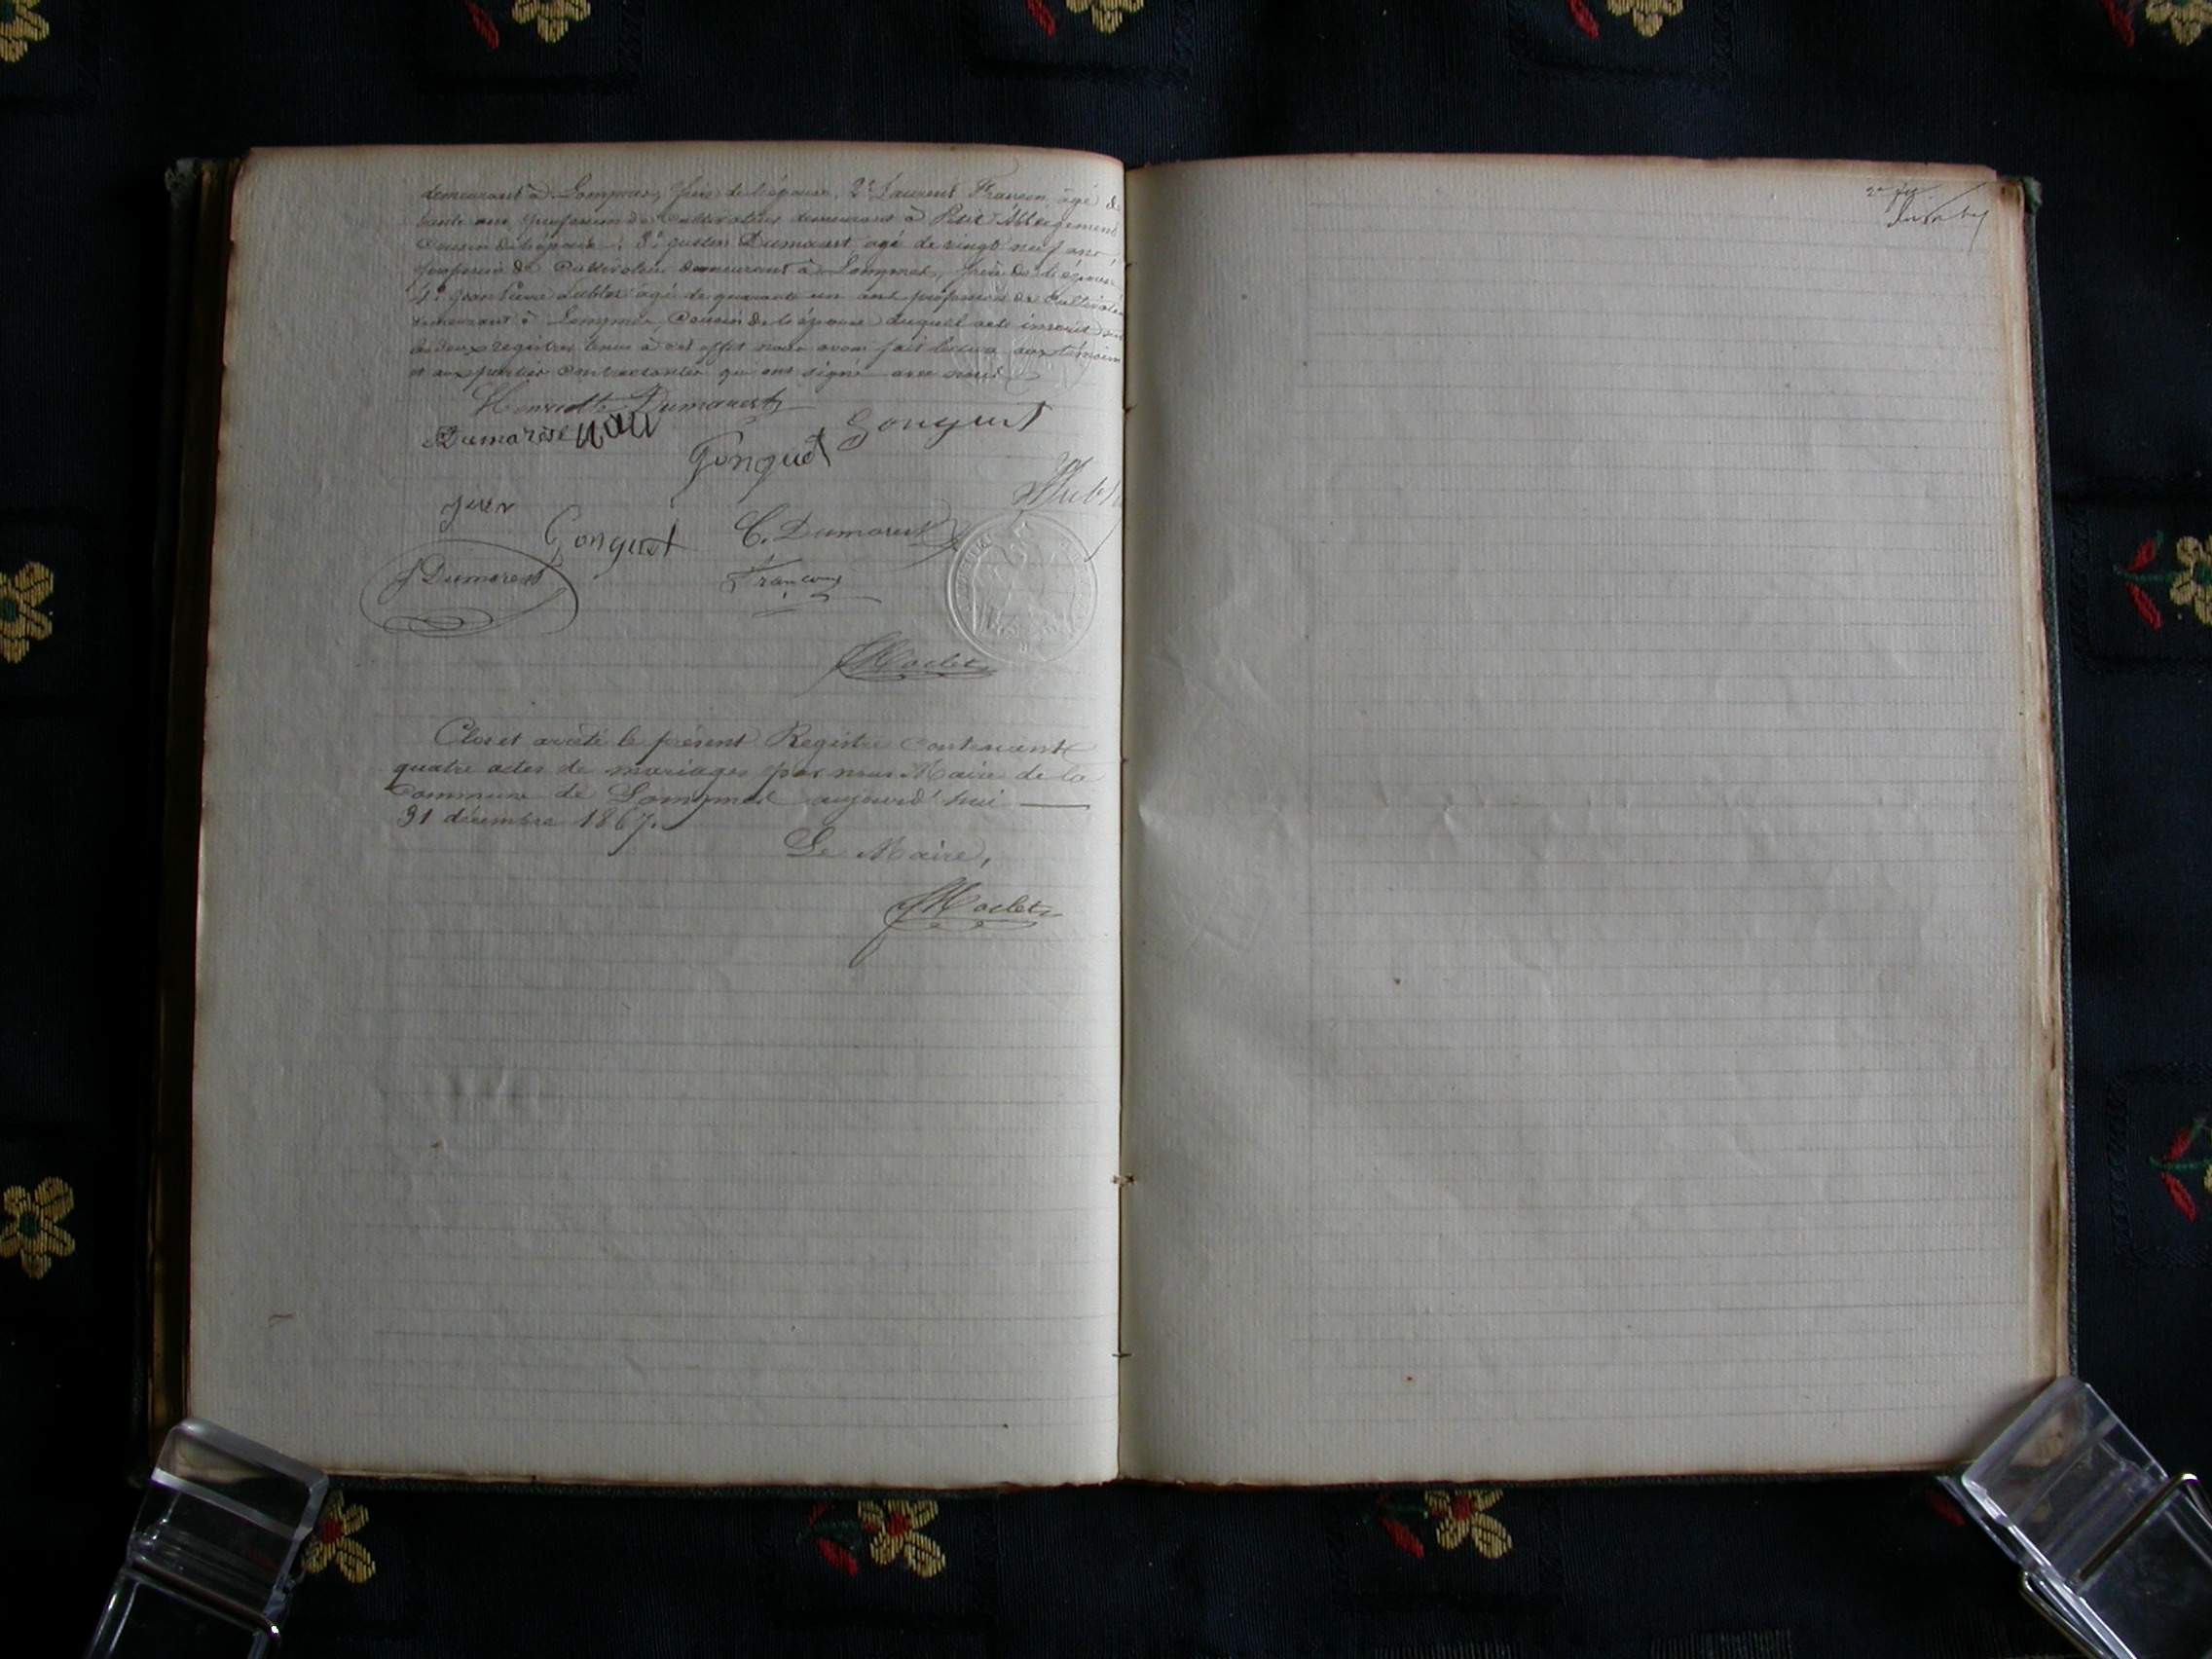 demeurant à Lompnes, frère de l'épouse, 2° Laurent Françon, âgé de
trente ans profession de cultivateur demeurant à Petit Abbergement
Cousin de l'épouse; 3° Justin Dumarest âgé de vingt neuf ans
profession de Cultivateur demeurant à Lompnes, frère de l'épouse
4° Jean Pierre âgé de quarante un ans profession de Cultivateur
demeurant à Lompnes, Cousin de l'épouse duquel acte inscrit sur
les deux registres tenus à cet effet nous avons fait lecture aux témoins
et aux parties Contractantes qui ont signé avec nous
Henriette Dumarest
Dumarest Gonguet
Gonguet
Gonguet C. Dumarest
J Dumarest Françon
Maclet
Clos et arrêté le présent Registre contenant
quatre actes de mariages par nous Maire de la
Commune de Lompnes aujourd'hui —
31 décembre 1867.
Le Maire,
Maclet